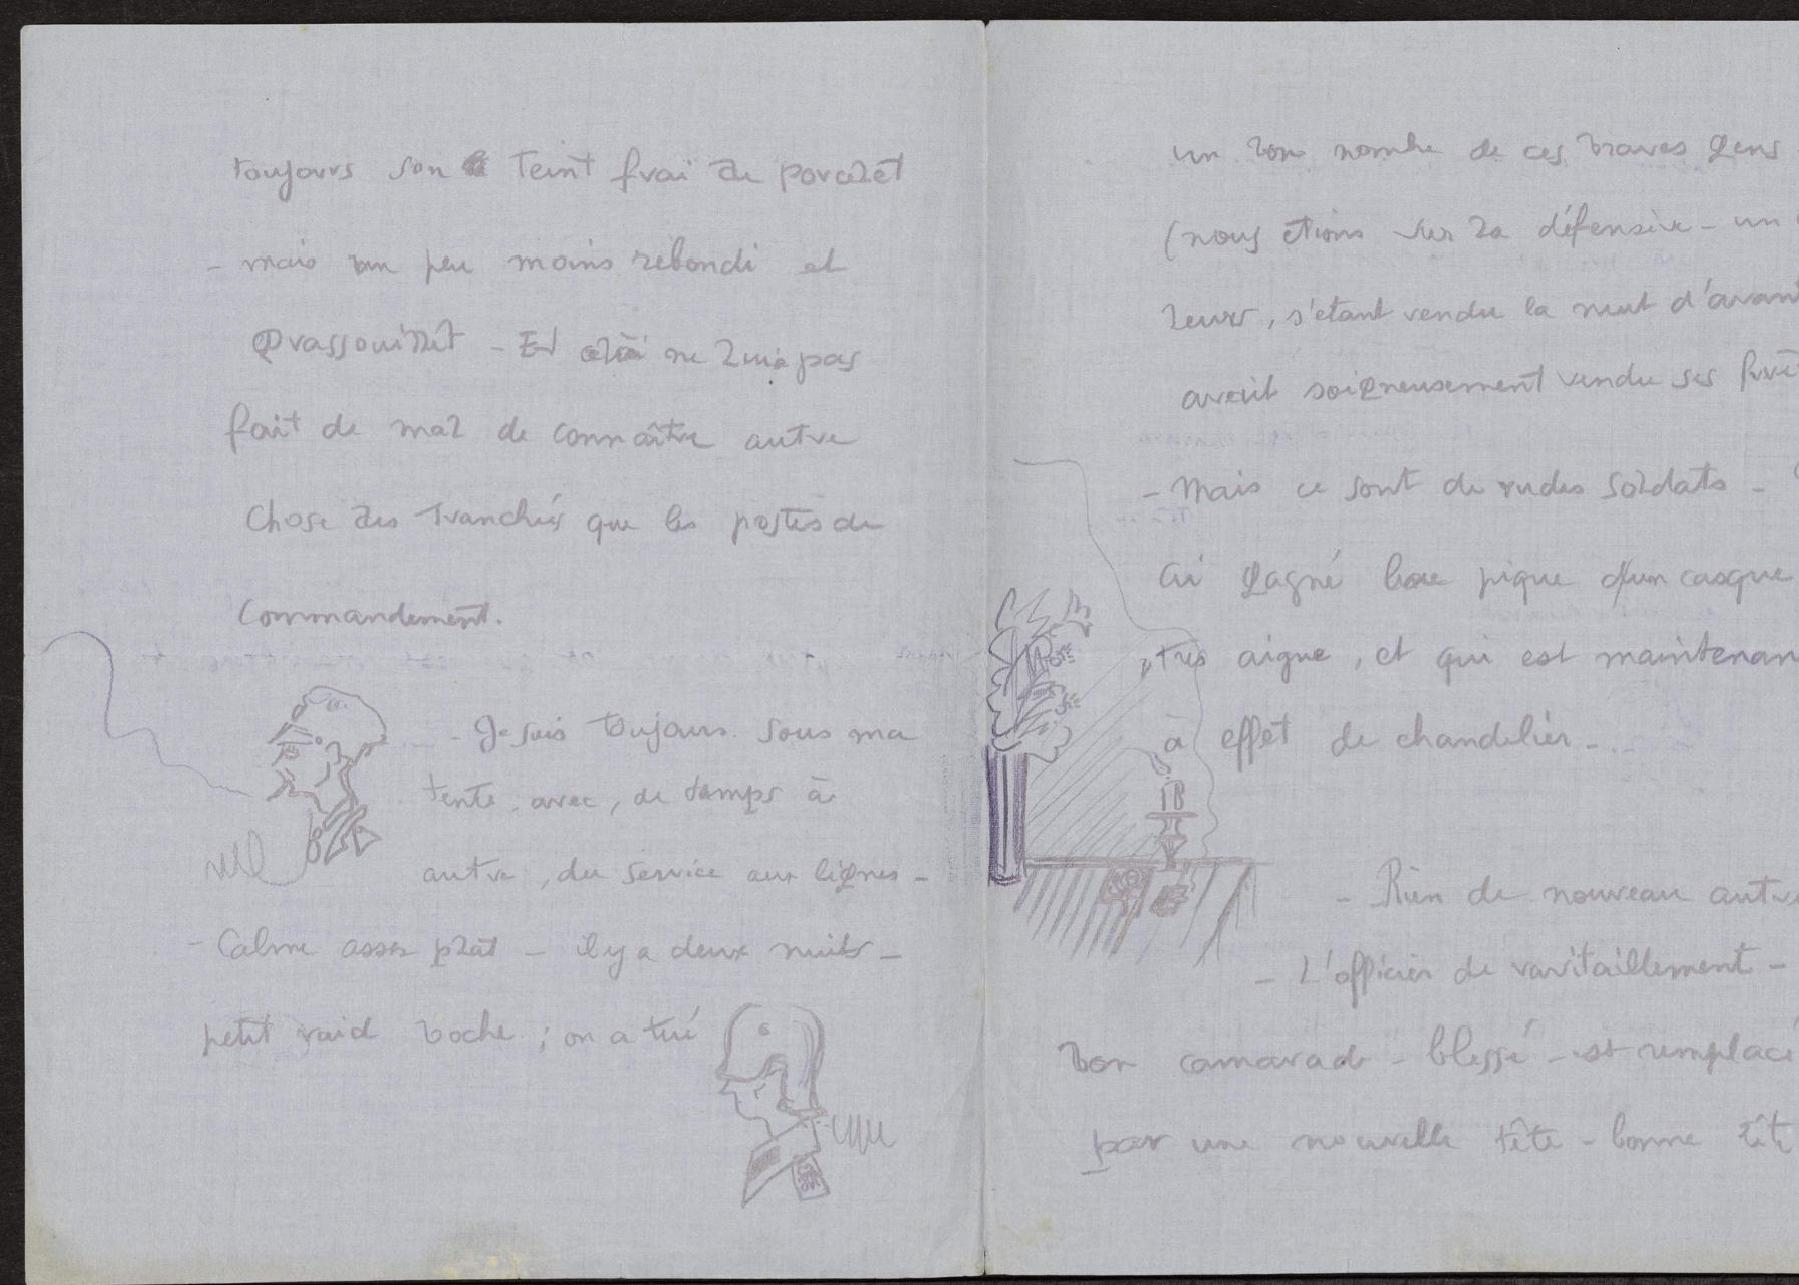 toujours son teint frai de porcelet
- mais un peu moins rebondi et
grassouillet - Et cela ne lui a pas
fait de mal de connaître autre
chose des tranchées que les postes de
commandement.
- Je suis toujours sous ma
tente, avec, de temps à
autre, du service aux lignes -
- Calme assez plat - il y a deux nuits -
petit raid boche ; on a tué
un bon nombre de ces braves gens
(nous etions sur la défensive - un
leurs, s'etant vendu la nuit d'avant
avait soigneusement vendu ses
- Mais ce sont de rudes soldats -
ai gagné pique d'un casque
très aigue, et qui est maintenan
à effet de chandelier -
- Rien de nouveau autre
- L'officier de ravitaillement -
bon camarade - blessé - est remplacé
par une nouvelle tête - bonne têt